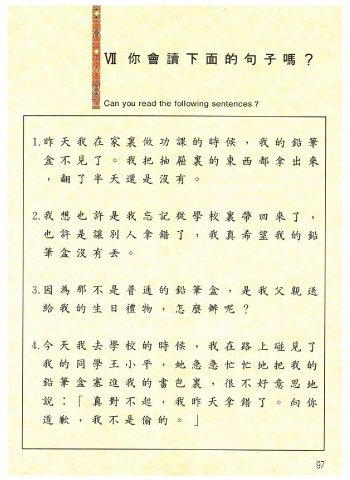 Ⅶ 你會讀下面的句子嗎？
Can you read the following sentences？
1.昨天我在家裏做功課的時候，我的鉛筆
盒不見了。我把抽屜裏的東西都拿出來
，翻了半天還是沒有。
2.我想也許是我忘記從學校裏帶回來了，
也許是讓別人拿錯了，我真希望我的鉛
筆盒沒有丟。
3.因為那不是普通的鉛筆盒，是我父親送
給我的生日禮物，怎麼辦呢？
4.今天我去學校的時候，我在路上碰見了
我的同學王小平，她急急忙忙地把我的
鉛筆盒塞進我的書包裏，很不好意思地
說：「真對不起，我昨天拿錯了。向你
道歉，我不是偷的。」
97